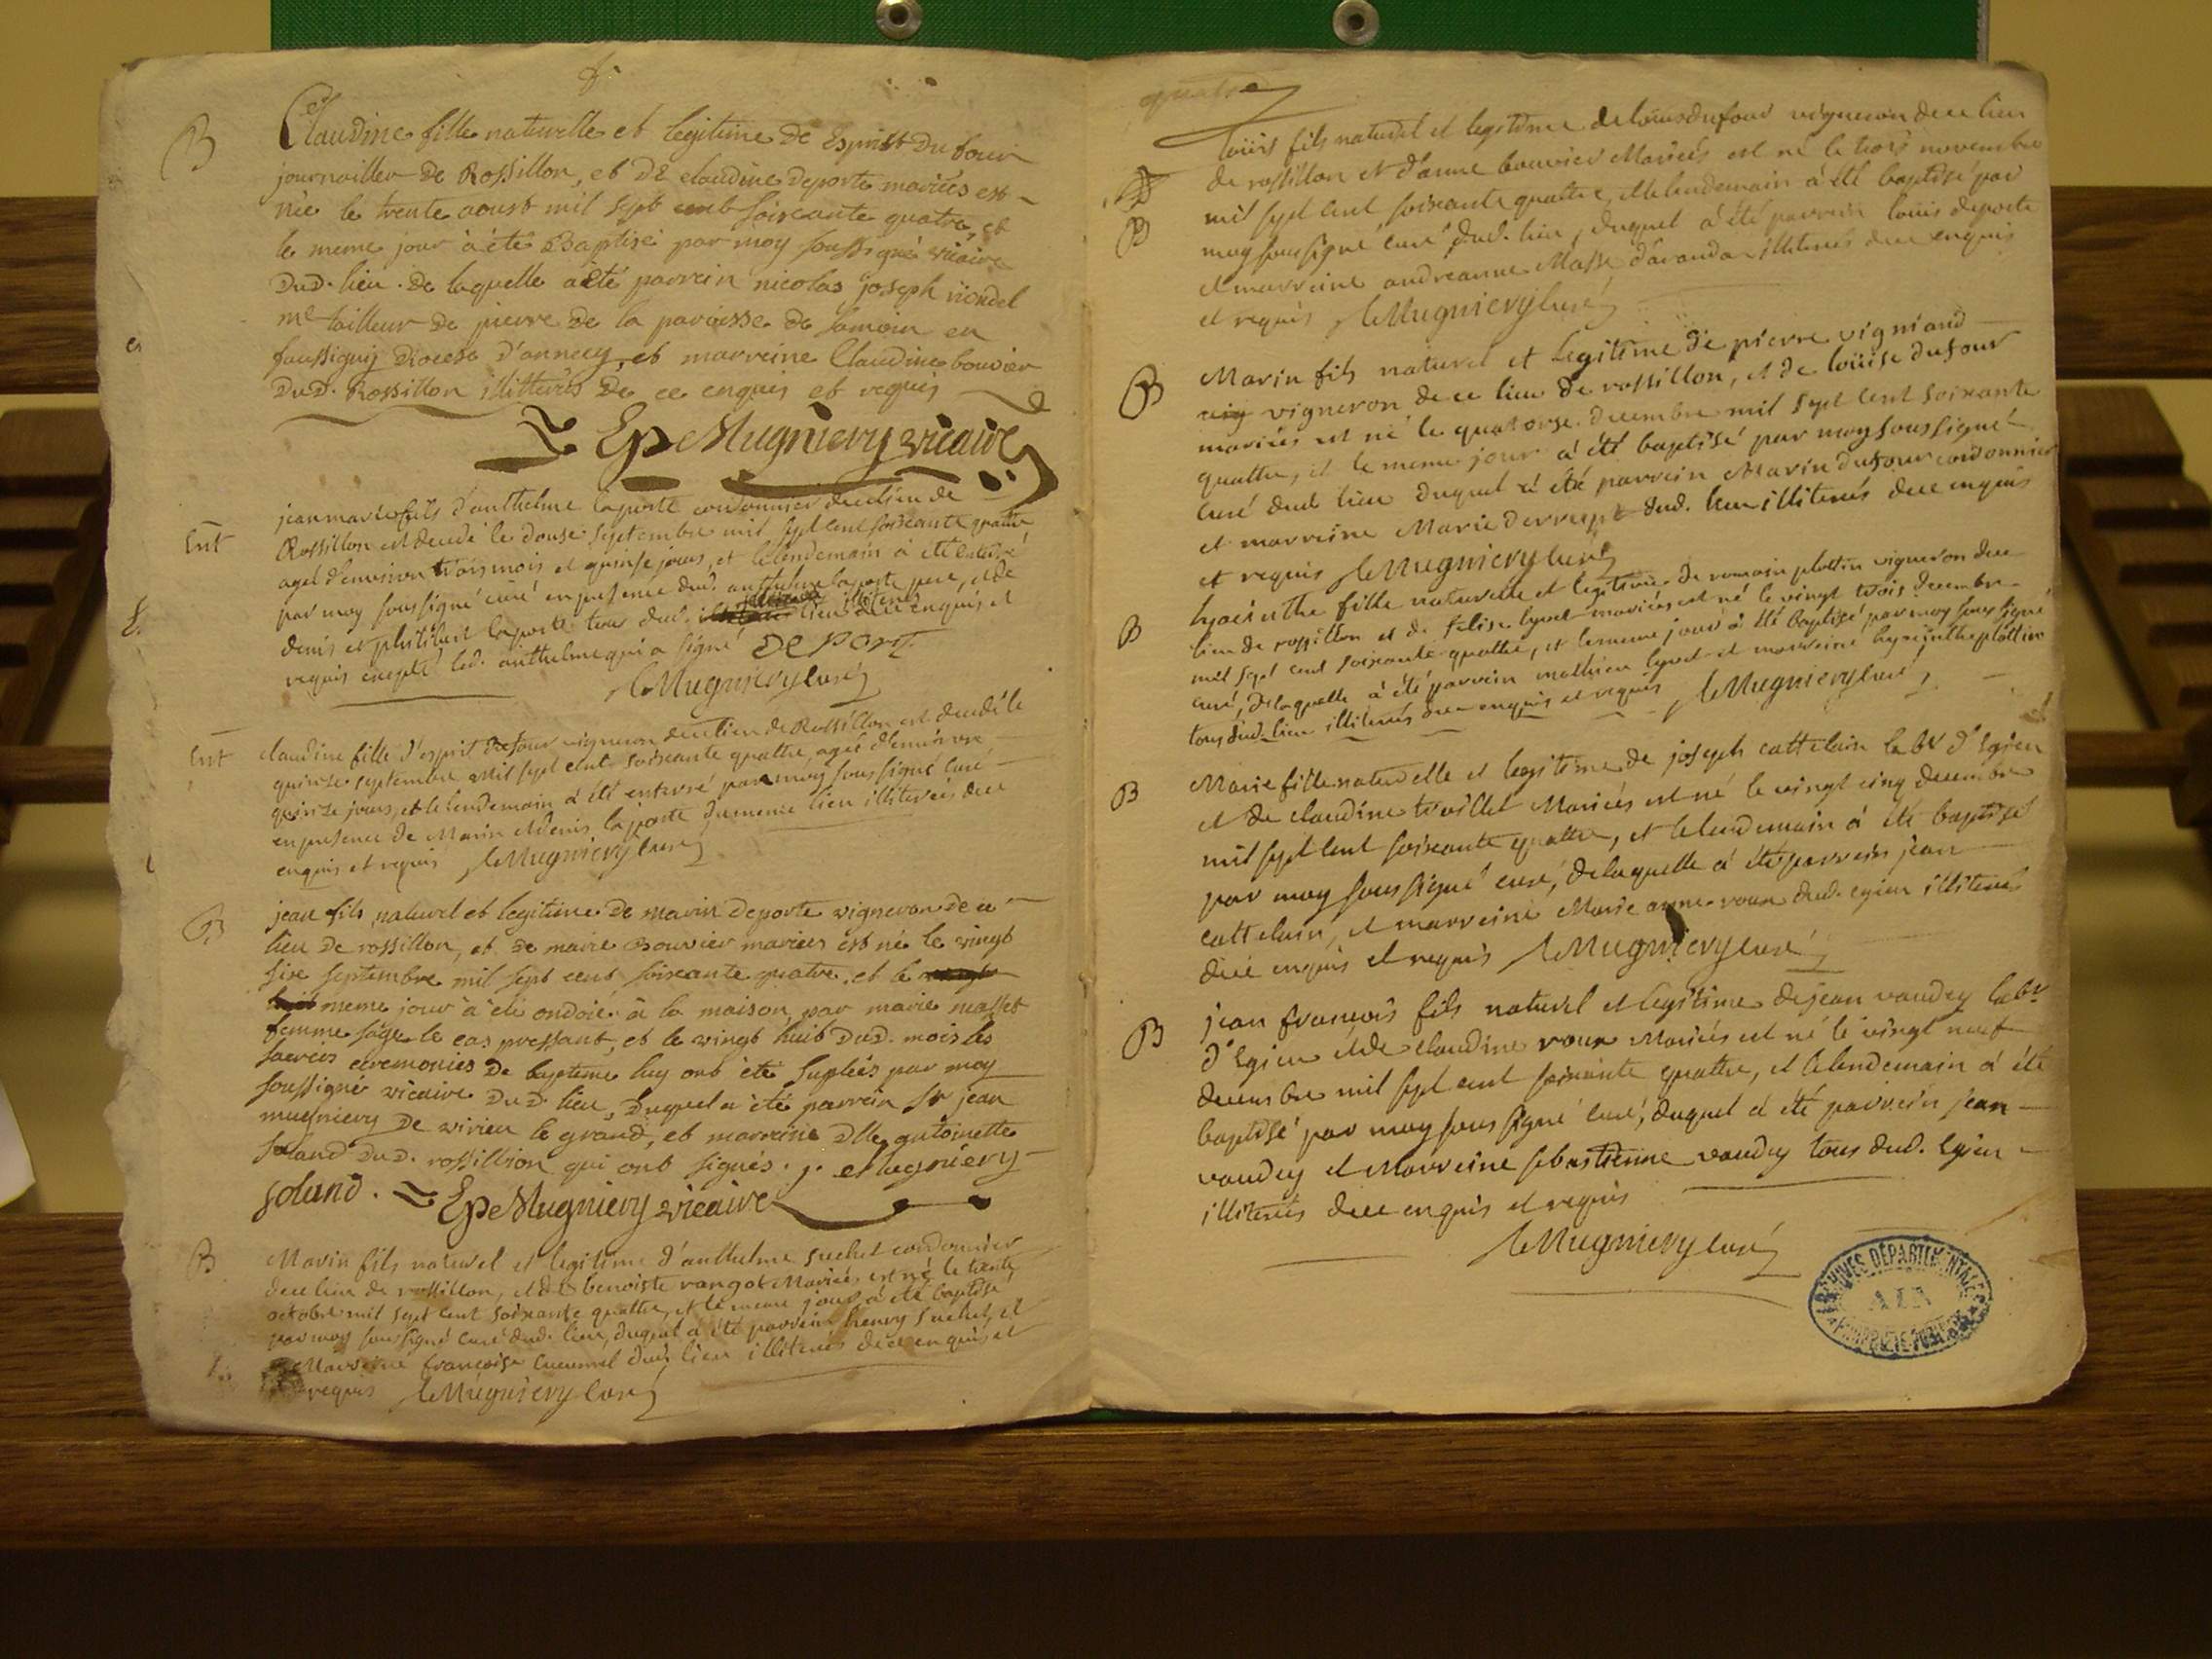 B
Claudine fille naturelle et legitime de Esprit Dufour
journaillier de Rossillon, et de claudine deporte mariés est
née le trente aoust mil sept cent soixante quatre, et
le meme jour à été Baptisé par moy soussigné vicaire
dud. lieu. de laquelle a été parrein nicolas joseph
me tailleur de pierre de la paroisse de samoin en
faussigniy diocese d'annecy, et marreine Claudine bouvier
dud. Rossillon illitterés de ce enquis et requis
Mugniery vicaire
Ent
jean marie fils d'anthelme laporte cordonnier de ce lieu de
Rossillon est decedé le douse septembre mil sept cent soixante quattre
agé d'environ trois mois et quinse jours, et le lendemain à été enterré
par moy soussigné curé en presence dud. anthelme laporte pere, et de
denis et philibert laporte tous dud. lieu illiterés de ce enquis et
requis excepté led. anthelme qui a signé De port
Mugniery curé
Ent
claudine fille d'esprit dufour vigneron de ce lieu de Rossillon est decedé le
quinze septembre mil sept cent soixante quattre, agée d'environ
quinze jours, et le lendemain à été enterré par moy soussigné curé
en presence de Marin et denis laporte du meme lieu illiterés de ce
enquis et requis Mugniery curé
B
jean fils naturel et legitime de marin deporte vigneron de ce
lieu de rossillon, et de marie Bouvier mariés est né le vingt
six septembre mil sept cent soixante quatre. et le
meme jour à été ondoié à la maison, par marie masset
femme sage le cas pressant, et le vingt huit dud. mois les
sacrées ceremonies de bapteme luy ont été supliés par moy
soussigné vicaire dud. lieu, duquel a été parrein Sr jean
mugniery de virieu le grand, et marreine dlle antoinette
soland dud. rossillion qui ont signés. j. Mugniery
soland. Mugniery vicaire
B
Marin fils naturel et legitime d'anthelme suchet cordonnier
de ce lieu de rossillon, et de benoiste rangot Mariés est né le trente
octobre mil sept cent soixante quattre, et le meme jour a été baptisé
par moy soussigné curé dud. lieu, duquel a été parrein henry suchet, et
Marreine françoise dud. lieu illiterés de ce enquis et
requis Mugniery curé
quatre
B
louis fils naturel et legitime de louis dufour vigneron de ce lieu
de rossillon et d'anne bouvier Mariés est né le trois novembre
mil sept cent soixante quattre, et le lendemain à été baptisé par
moy soussigné curé dud. lieu, duquel à été parrein louis deporte
et marreine andreanne Masse d'aranda illiterés de ce enquis
et requis Mugniery curé
B
Marin fils naturel et legitime de pierre vigniand
vig vigneron de ce lieu de rossillon, et de loüise dufour
mariés est né le quatorse decembre mil sept cent soixante
quattre, et le meme jour a été baptisé par moy soussigné
curé dud. lieu duquel à été parrein Marin dufour cordonnier
et marreine Marie dud. lieu illiterés de ce enquis
et requis Mugniery curé
B
hyacinthe fille naturelle et legitime de romain plottin vigneron de ce
lieu de rossillon et de felise lynet mariés est né le vingt trois decembre
mil sept cent soixante quattre, et le meme jour à été baptisé par moy soussigné
curé, de laquelle à été parrein mathieu lynet et marreine hyacinthe plottin
tous dud. lieu illiterés de ce enquis et requis Mugniery curé
B
Marie fille naturelle et legitime de joseph cattelain labr d'Egieu
et de claudine trollet Mariés est né le vingt cinq decembre
mil sept cent soixante quattre, et le lendemain à été baptisé
par moy soussigné curé, de laquelle à été parrein jean
cattelain, et marreine Marie anne roux dud. egieu illiterés
de ce enquis et requis Mugniery curé
B
jean françois fils naturel et legitime de jean vaudey labr
d'Egieu et de claudine roux Mariés est né le vingt neuf
decembre mil sept cent soixante quattre, et le lendemain à été
baptisé par moy soussigné curé, duquel à été parrein jean
vaudey et Marreine sebastienne vaudey tous dud. Egieu
illiterés de ce enquis et requis
Mugniery curé
ARCHIVES DÉPARTEMENTALES
AIN
PROPRIÉTÉ PUBLIQUE